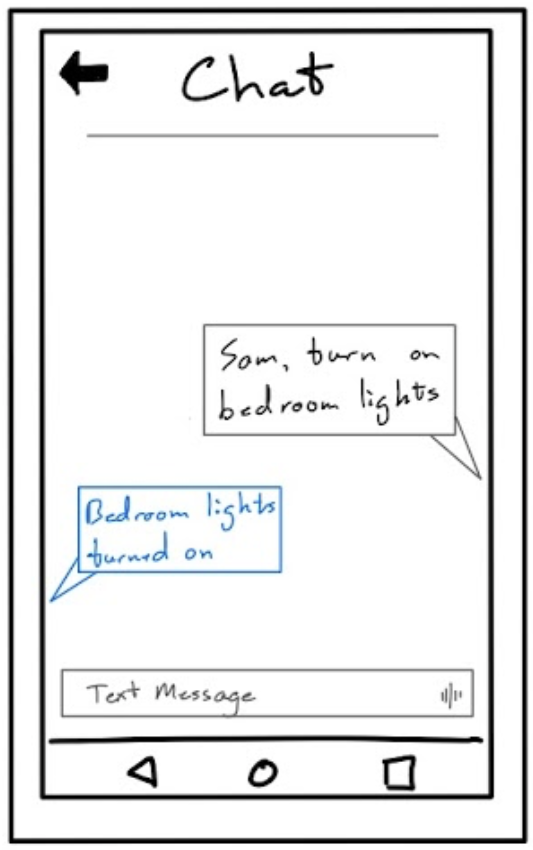 Chat
Sam, turn on
bedroom lights
Bedroom lights
turned on
Text Message